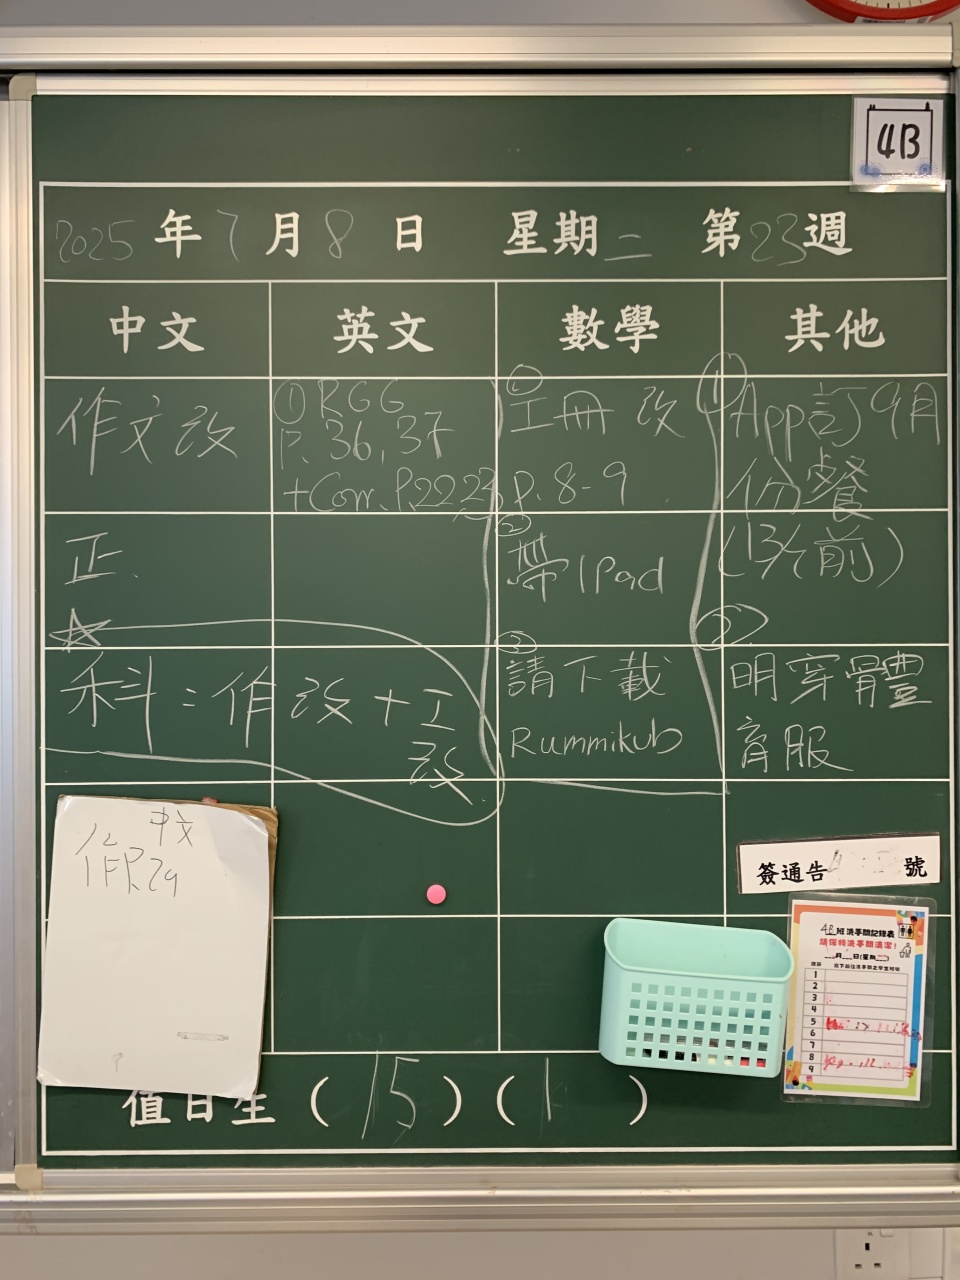 4B
2025年7月8日 星期二 第23週
中文 英文 數學 其他
作文改
正.
☆
科:作改+工
改.
① RGG
P. 36, 37
+Corr. P.22,23
① 工冊 改
P. 8-9.
② 帶 IPad
③ 請下載
Rummikub
① App訂9月
份餐
(13/7前)
② 明穿體
育服
中文
作P.29
簽通告 號
4B班洗手間記錄表
請保持洗手間清潔!
月 日(星期 )
1
2
3
4
5
6
7
8
9
值日生 (15) (1 )